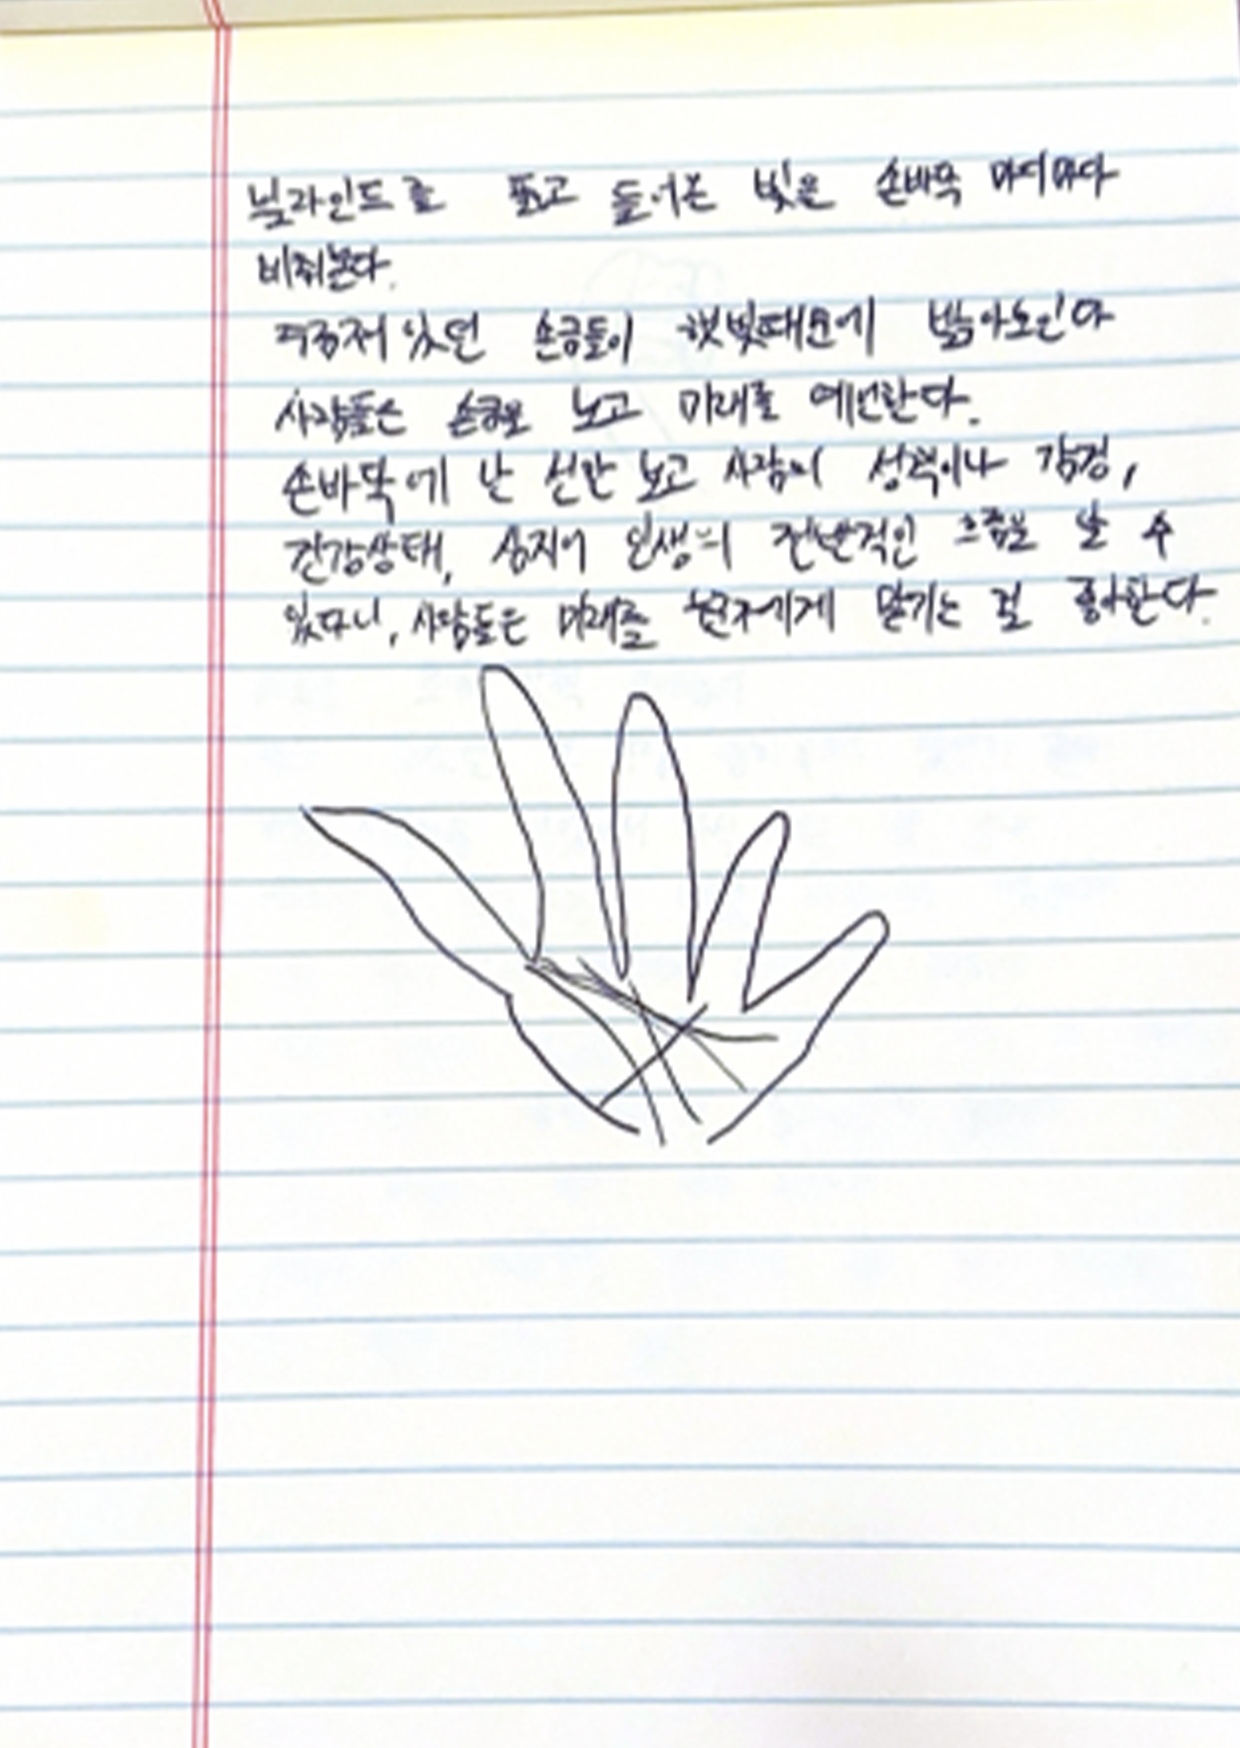 블라인드를 뚫고 들어온 빛은 손바닥 마디마다
비춰본다.
있던 손금들이 햇빛때문에 밝아보인다
사람들은 손금을 보고 미래를 예언한다.
손바닥에 난 선만 보고 사람의 성격이나 감정,
건강상태, 심지어 인생의 전반적인 흐름을 알 수
있다니, 사람들은 미래를 현재에게 맡기는 걸 좋아한다.